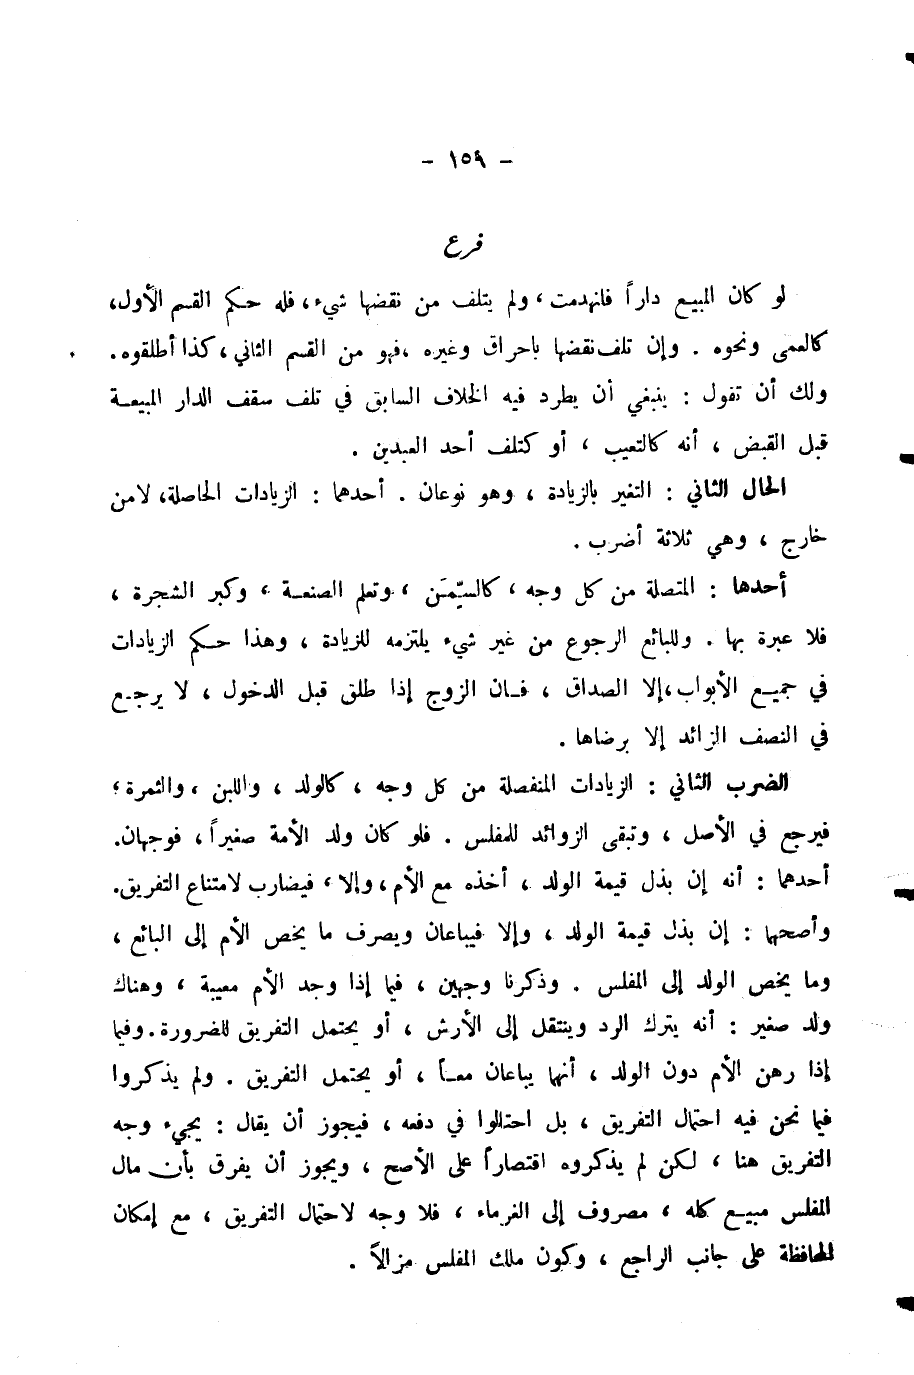 - ١٥٩ -
فرع
لو كان المبيع داراً فانهدمت ، ولم يتلف من نقضها شيء ، فله حكم القسم الأول ،
كالعمى ونحوه . وإن تلف نقضها باحراق وغيره ، فهو من القسم الثاني ، كذا أطلقوه .
ولك أن تقول : ينبغي أن يطرد فيه الخلاف السابق في تلف سقف الدار المبيعة
قبل القبض ، أنه كالتعيب ، أو كتلف أحد العبدين .
الحال الثاني : التغير بالزيادة ، وهو نوعان . أحدهما : الزيادات الحاصلة ، لا من
خارج ، وهي ثلاثة أضرب .
أحدها : المتصلة من كل وجه ، كالسِّمَن ، وتعلم الصنعة ، وكبر الشجرة ،
فلا عبرة بها . وللبائع الرجوع من غير شيء يلتزمه للزيادة ، وهذا حكم الزيادات
في جميع الأبواب ، إلا الصداق ، فان الزوج إذا طلق قبل الدخول ، لا يرجع
في النصف الزائد إلا برضاها .
الضرب الثاني : الزيادات المنفصلة من كل وجه ، كالولد ، واللبن ، والثمرة ؛
فيرجع في الأصل ، وتبقى الزوائد للمفلس . فلو كان ولد الأمة صغيراً ، فوجهان .
أحدهما : أنه إن بذل قيمة الولد ، أخذه مع الأم ، وإلا ، فيضارب لامتناع التفريق .
وأصحهما : إن بذل قيمة الولد ، وإلا فيباعان ويصرف ما يخص الأم إلى البائع ،
وما يخص الولد إلى المفلس . وذكرنا وجهين ، فيما إذا وجد الأم معيبة ، وهناك
ولد صغير : أنه يترك الرد وينتقل إلى الأرش ، أو يحتمل التفريق للضرورة . وفيما
إذا رهن الأم دون الولد ، أنهما يباعان معاً ، أو يحتمل التفريق . ولم يذكروا
فيما نحن فيه احتمال التفريق ، بل احتالوا في دفعه ، فيجوز أن يقال : يجيء وجه
التفريق هنا ، لكن لم يذكروه اقتصاراً على الأصح ، ويجوز أن يفرق بأن مال
المفلس مبيع كله ، مصروف إلى الغرماء ، فلا وجه لاحتمال التفريق ، مع إمكان
المحافظة على جانب الراجع ، وكون ملك المفلس مزالاً .